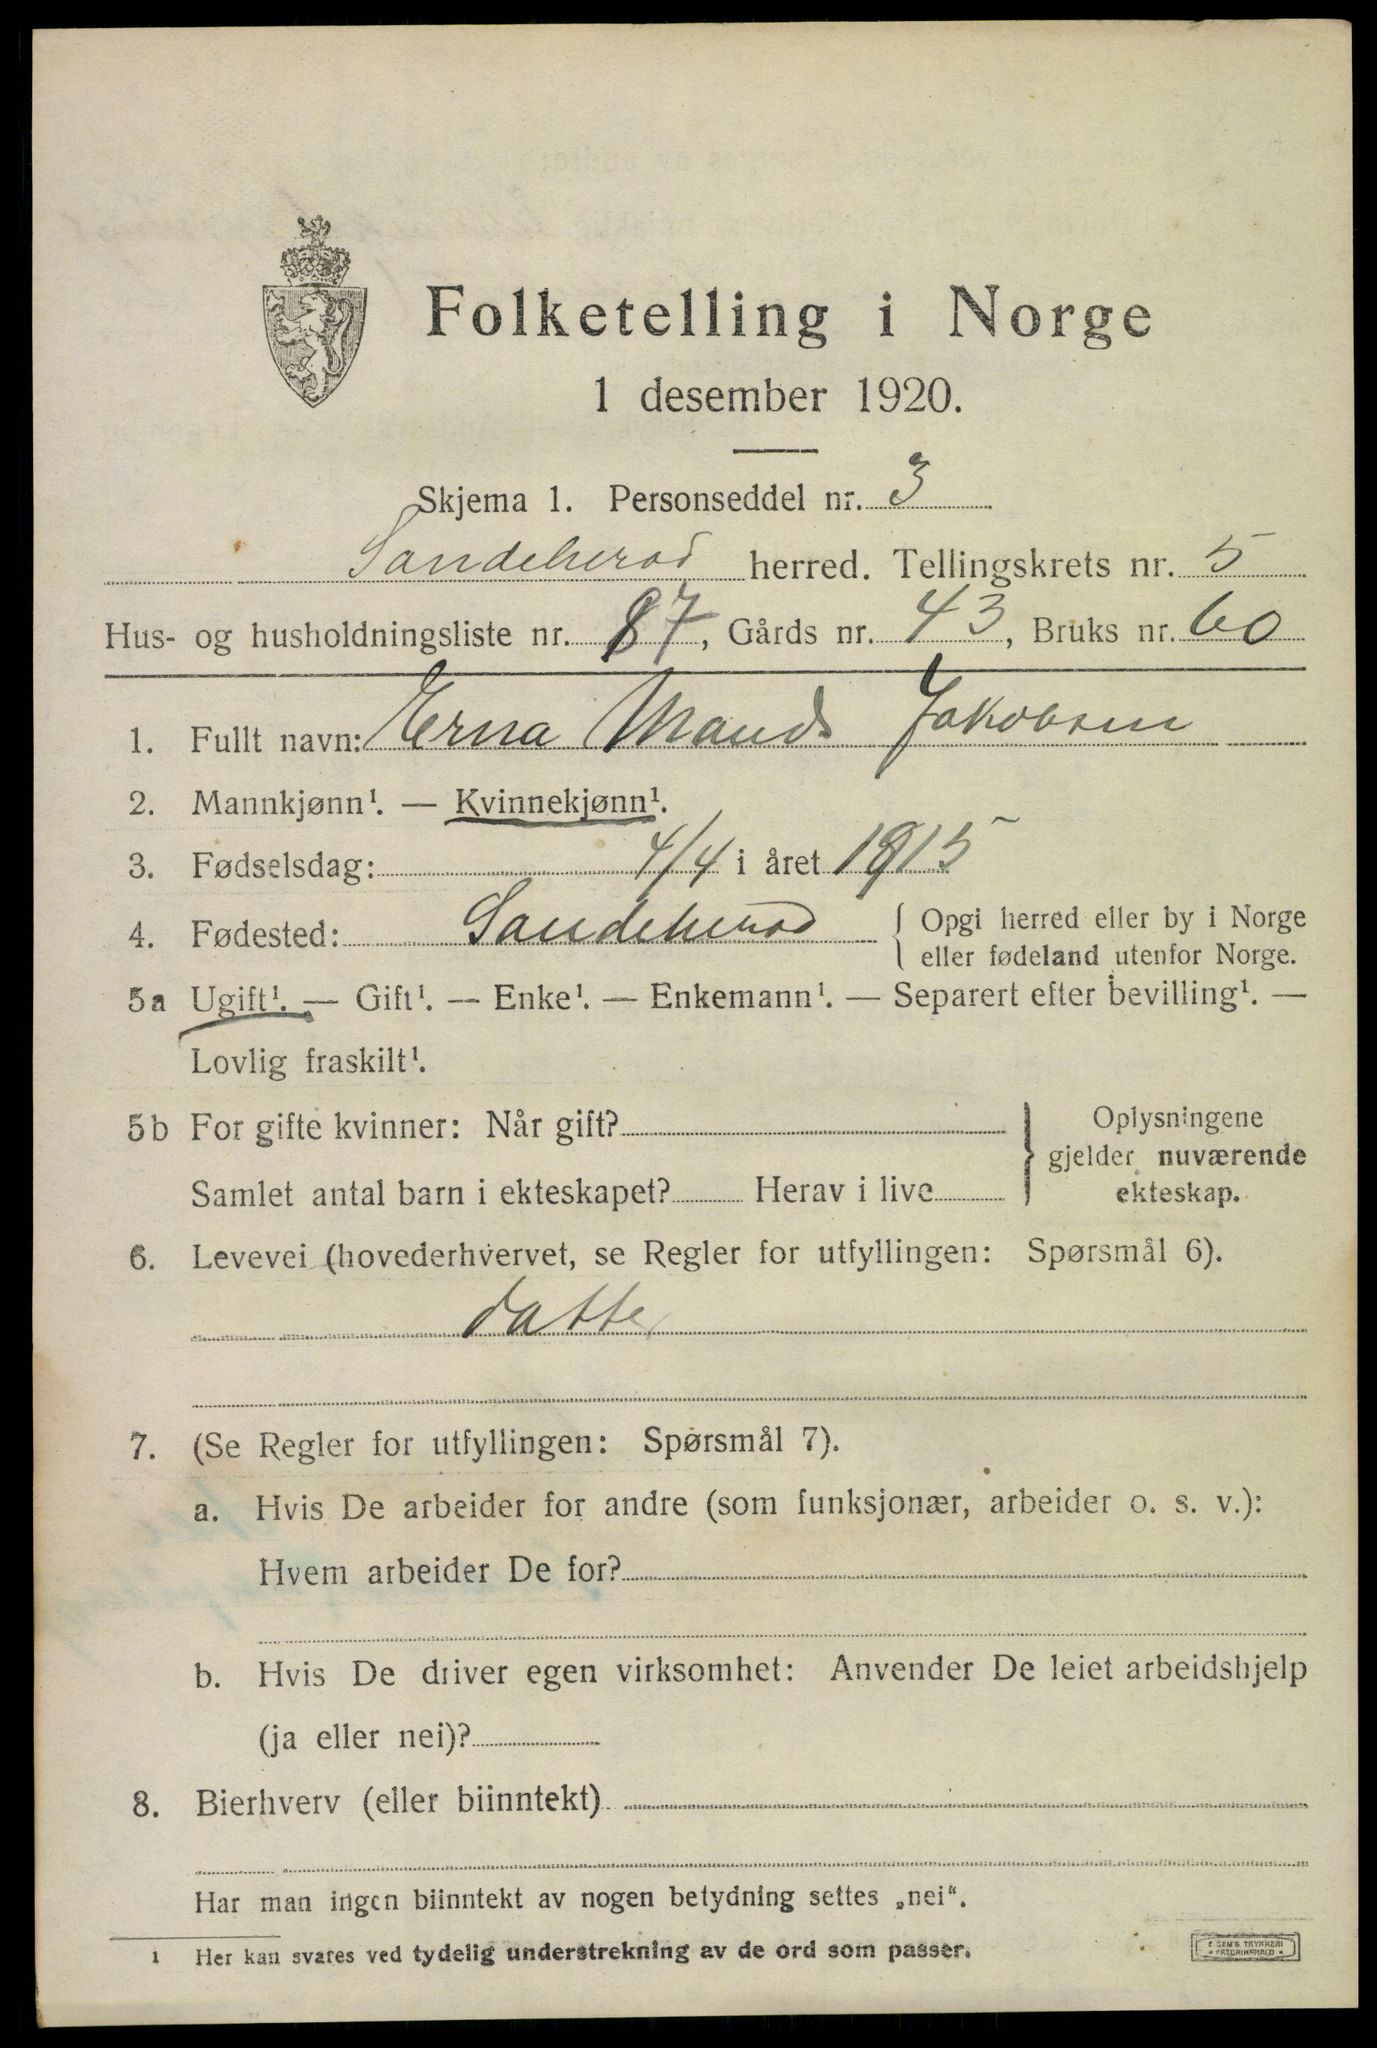 Folketelling i Norge
1 desember 1920.
Skjema 1. Personseddel nr. 3
Sandeherad herred. Tellingskrets nr. 5
Hus- og husholdningsliste nr. 87, Gårds nr. 43, Bruks nr. 60
1. Fullt navn: Erna Mauds Jakobsen
2. Mannkjønn¹. — Kvinnekjønn¹.
3. Fødselsdag: 4/4 i året 1915
4. Fødested: Sandeherad { Opgi herred eller by i Norge
eller fødeland utenfor Norge.
5a Ugift¹. — Gift¹. — Enke¹. — Enkemann¹. — Separert efter bevilling¹. —
Lovlig fraskilt¹.
5b For gifte kvinner: Når gift?
Samlet antal barn i ekteskapet? Herav i live
} Oplysningene
gjelder nuværende
ekteskap.
6. Levevei (hovederhvervet, se Regler for utfyllingen: Spørsmål 6).
datter
7. (Se Regler for utfyllingen: Spørsmål 7).
a. Hvis De arbeider for andre (som funksjonær, arbeider o. s. v.):
Hvem arbeider De for?
b. Hvis De driver egen virksomhet: Anvender De leiet arbeidshjelp
(ja eller nei)?
8. Bierhverv (eller biinntekt)
Har man ingen biinntekt av nogen betydning settes „nei“.
1 Her kan svares ved tydelig understrekning av de ord som passer.
E. SEM'S TRYKKERI
FREDRIKSHALD